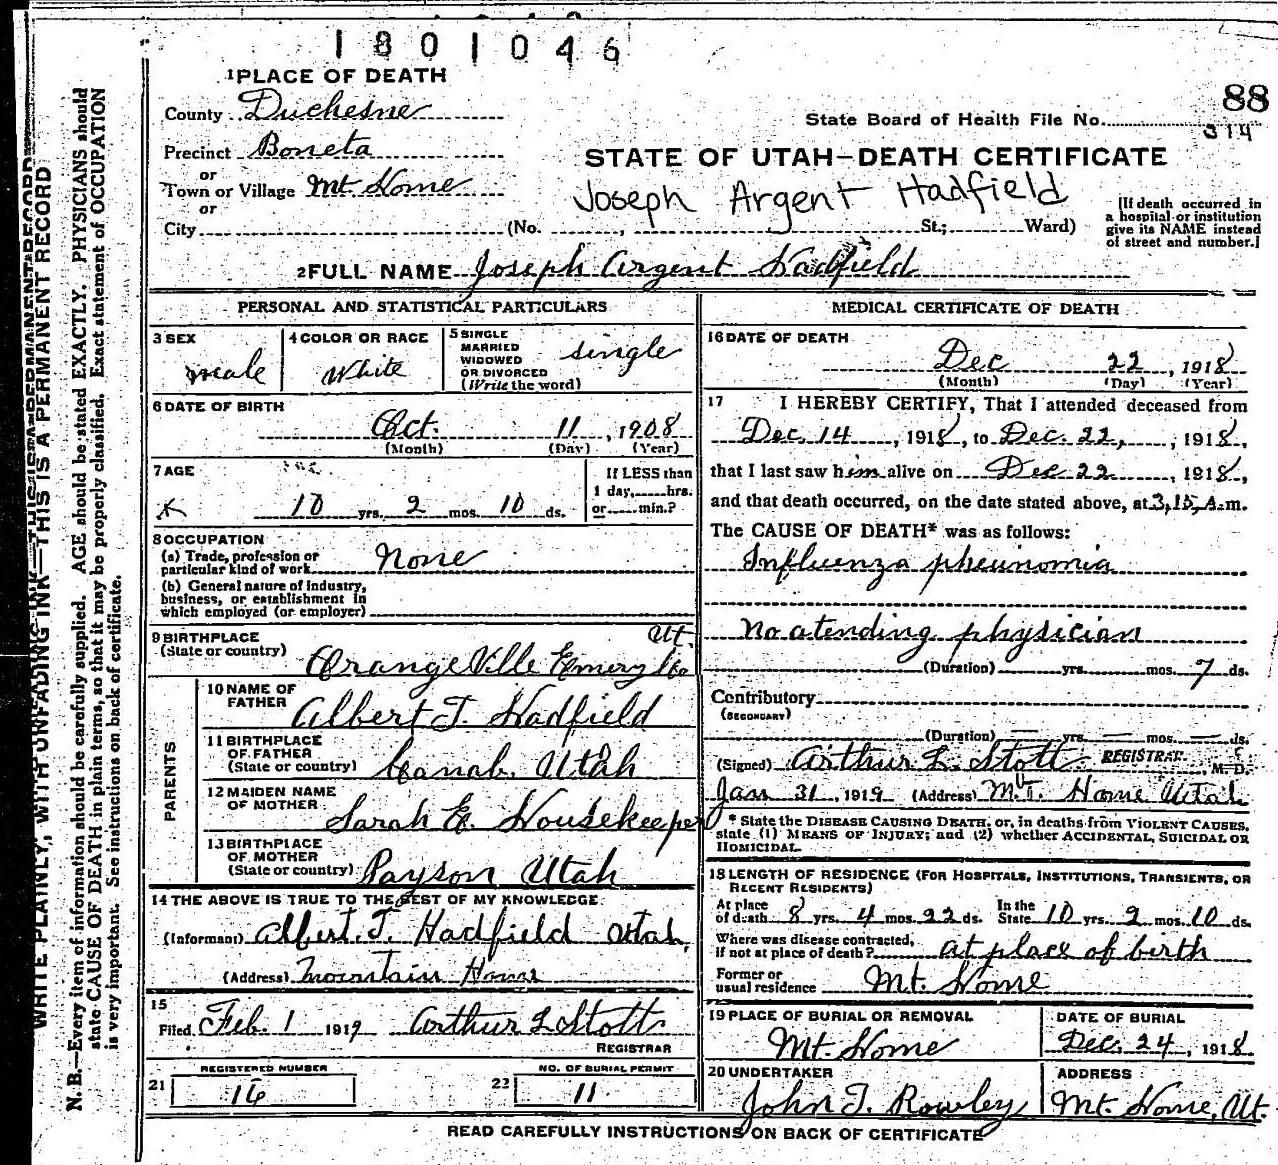 1801046
1 PLACE OF DEATH
88
County Duchesne
State Board of Health File No.
314
Precinct Boneta
STATE OF UTAH—DEATH CERTIFICATE
or
Town or Village Mt Home
Joseph Argent Hadfield
or
City (No. , St.; Ward)
[If death occurred in
a hospital or institution
give its NAME instead
of street and number.]
2 FULL NAME Joseph Argent Hadfield
PERSONAL AND STATISTICAL PARTICULARS
3 SEX
male
4 COLOR OR RACE
White
5 SINGLE
MARRIED
WIDOWED
OR DIVORCED
(Write the word)
single
6 DATE OF BIRTH
Oct. 11, 1908
(Month) (Day) (Year)
7 AGE
10 yrs. 2 mos. 10 ds.
If LESS than
1 day, hrs.
or min.?
8 OCCUPATION
(a) Trade, profession or
particular kind of work None
(b) General nature of industry,
business, or establishment in
which employed (or employer)
9 BIRTHPLACE
(State or country) OrangeVille Emery Co Ut.
PARENTS
10 NAME OF
FATHER Albert T. Hadfield
11 BIRTHPLACE
OF FATHER
(State or country) Canab. Utah
12 MAIDEN NAME
OF MOTHER Sarah E. Housekeeper
13 BIRTHPLACE
OF MOTHER
(State or country) Payson Utah
14 THE ABOVE IS TRUE TO THE BEST OF MY KNOWLEDGE
(Informant) Albert. T. Hadfield Utah,
(Address) Mountain Home
15
Filed Feb. 1 1919 Arthur L Stott
REGISTRAR
21 REGISTERED NUMBER
16
22 NO. OF BURIAL PERMIT
11
MEDICAL CERTIFICATE OF DEATH
16 DATE OF DEATH
Dec 22, 1918
(Month) (Day) (Year)
17 I HEREBY CERTIFY, That I attended deceased from
Dec. 14, 1918, to Dec. 22, , 1918,
that I last saw him alive on Dec 22, 1918,
and that death occurred, on the date stated above, at 3,15, A.m.
The CAUSE OF DEATH* was as follows:
Influenza pheunomia
No atending physician
(Duration) yrs. mos. 7 ds.
Contributory
(SECONDARY)
(Duration) — yrs. — mos. — ds.
(Signed) Arthur L. Stott REGISTRAR, M. D.
Jan 31, 1919 (Address) Mt. Home Utah
* State the DISEASE CAUSING DEATH, or, in deaths from VIOLENT CAUSES,
state (1) MEANS OF INJURY; and (2) whether ACCIDENTAL, SUICIDAL OR
HOMICIDAL.
18 LENGTH OF RESIDENCE (FOR HOSPITALS, INSTITUTIONS, TRANSIENTS, OR
RECENT RESIDENTS)
At place
of death 8 yrs. 4 mos. 22 ds. In the
State 10 yrs. 2 mos. 10 ds.
Where was disease contracted,
if not at place of death? at place of birth
Former or
usual residence Mt. Home
19 PLACE OF BURIAL OR REMOVAL
Mt. Home
DATE OF BURIAL
Dec. 24, 1918
20 UNDERTAKER
John T. Rowley
ADDRESS
Mt. Home, Ut.
READ CAREFULLY INSTRUCTIONS ON BACK OF CERTIFICATE
WRITE PLAINLY, WITH UNFADING INK—THIS IS A PERMANENT RECORD
N. B.—Every item of information should be carefully supplied. AGE should be stated EXACTLY. PHYSICIANS should
state CAUSE OF DEATH in plain terms, so that it may be properly classified. Exact statement of OCCUPATION
is very important. See instructions on back of certificate.